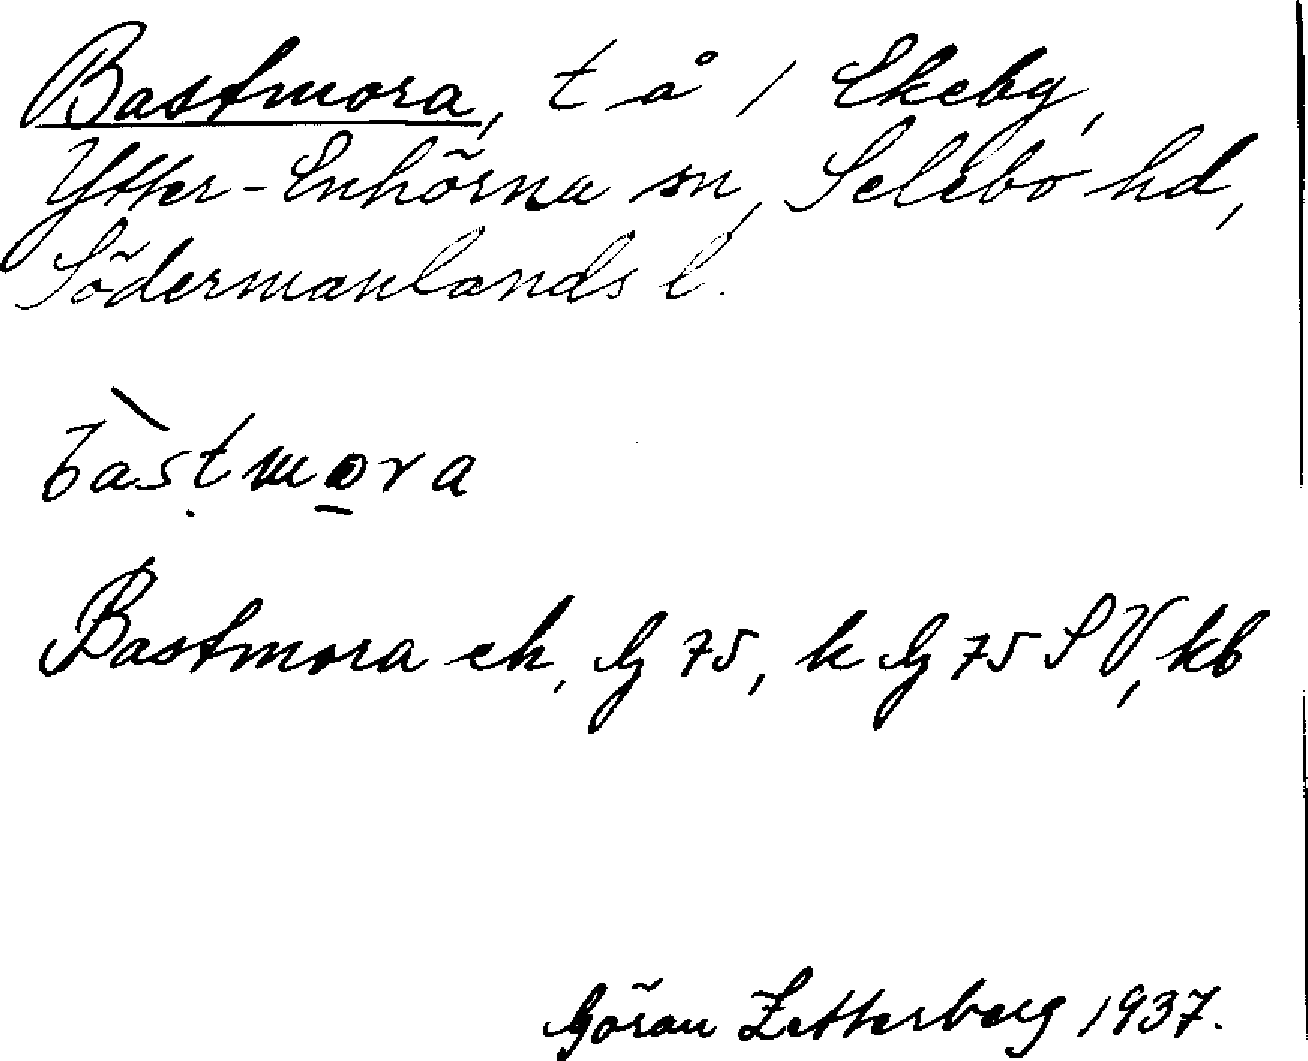 Bastmora, t å / Ekeby,
Ytter-Enhörna sn, Selebo hd,
Södermanlands l.
bàstmo̲ra
Bastmora ek, G 75, k G 75 SV, kb
Göran Zetterberg 1937.